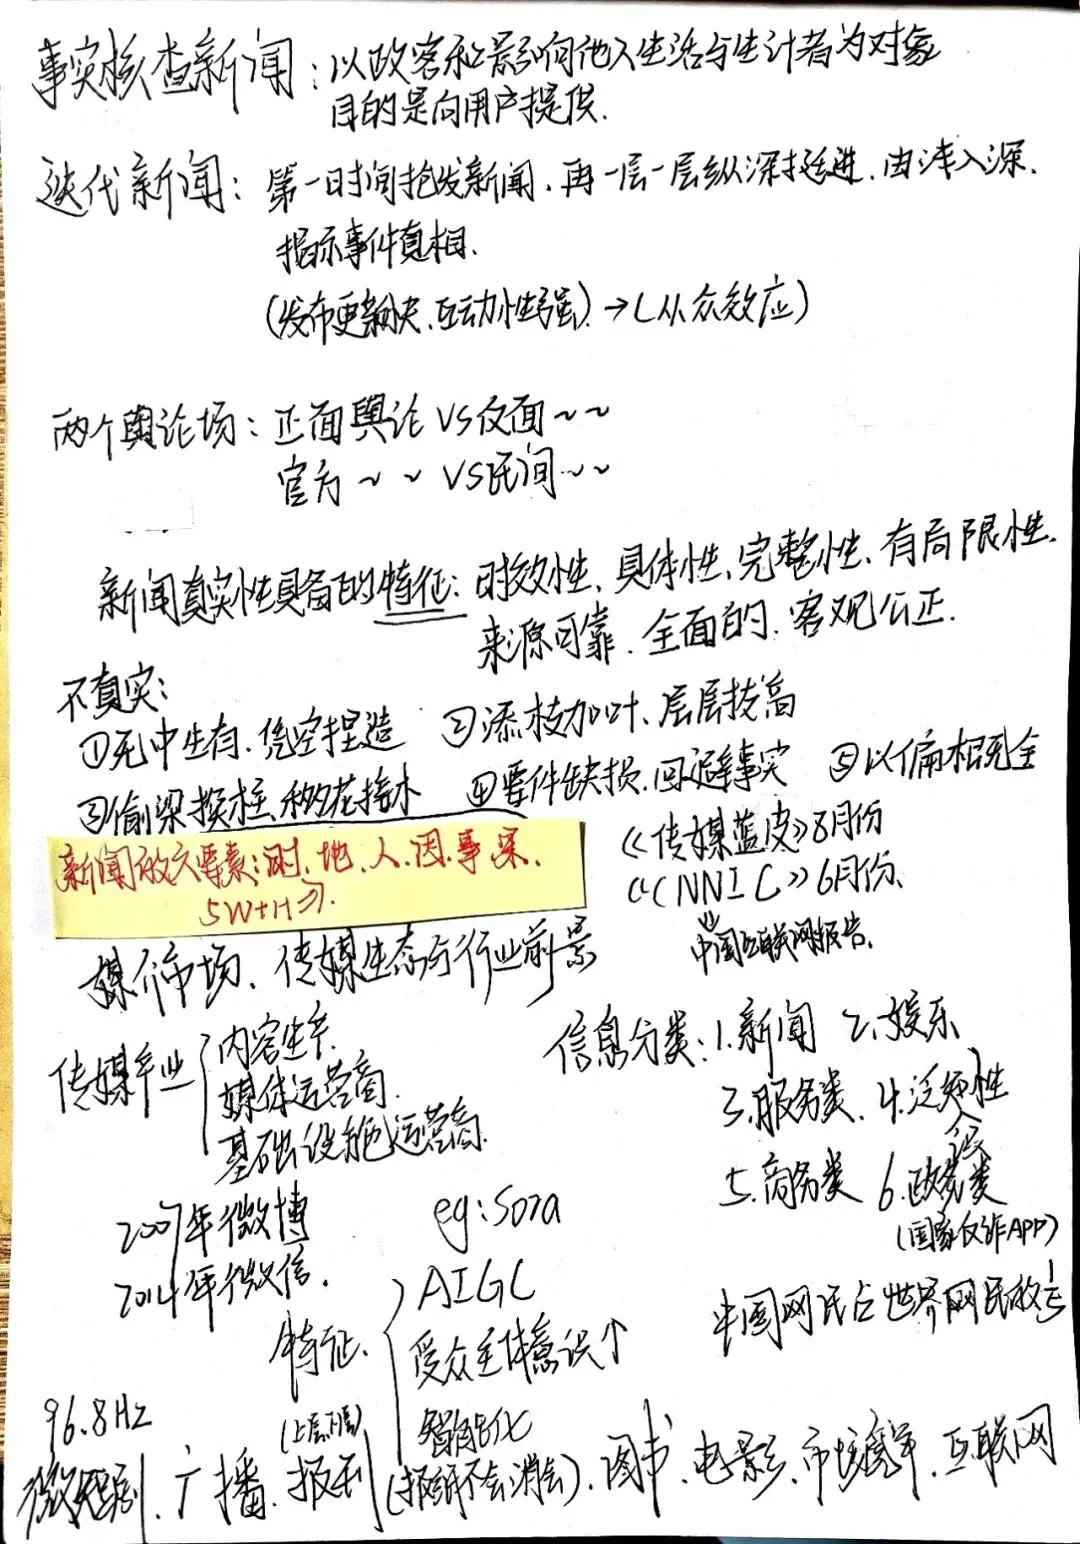 事实核查新闻：以政客和影响他人生活与生计者为对象
目的是向用户提供.
迭代新闻：第一时间抢发新闻.再一层一层纵深挺进.由浅入深.
揭示事件真相.
(发布更新快.互动性强)→(从众效应)
两个舆论场：正面舆论 VS 反面~~
官方~~ VS 民间~~
新闻真实性具备的特征：时效性、具体性、完整性、有局限性.
来源可靠.全面的.客观公正.
不真实：
①无中生有.凭空捏造 ②添枝加叶、层层拔高
③偷梁换柱.移花接木 ④要件缺损.回避事实 ⑤以偏概全
新闻的六要素：时.地.人.因.事.果.
5W+H
《传媒蓝皮》8月份
《CNNIC》6月份.
中国互联网报告.
媒介市场、传媒生态与行业前景
传媒产业
内容生产.
媒体运营商.
基础设施运营商.
信息分类：1.新闻 2.娱乐
3.服务类. 4.泛知性
识
5.商务类 6.政党类
(国家反诈APP)
2007年微博
2014年微信.
eg:Sora
中国网民占世界网民的1/5
特征.
AIGC
受众主体意识↑
智能化
96.8Hz
微短剧.广播.报刊(报纸不会消失).图书.电影.市场竞争.互联网